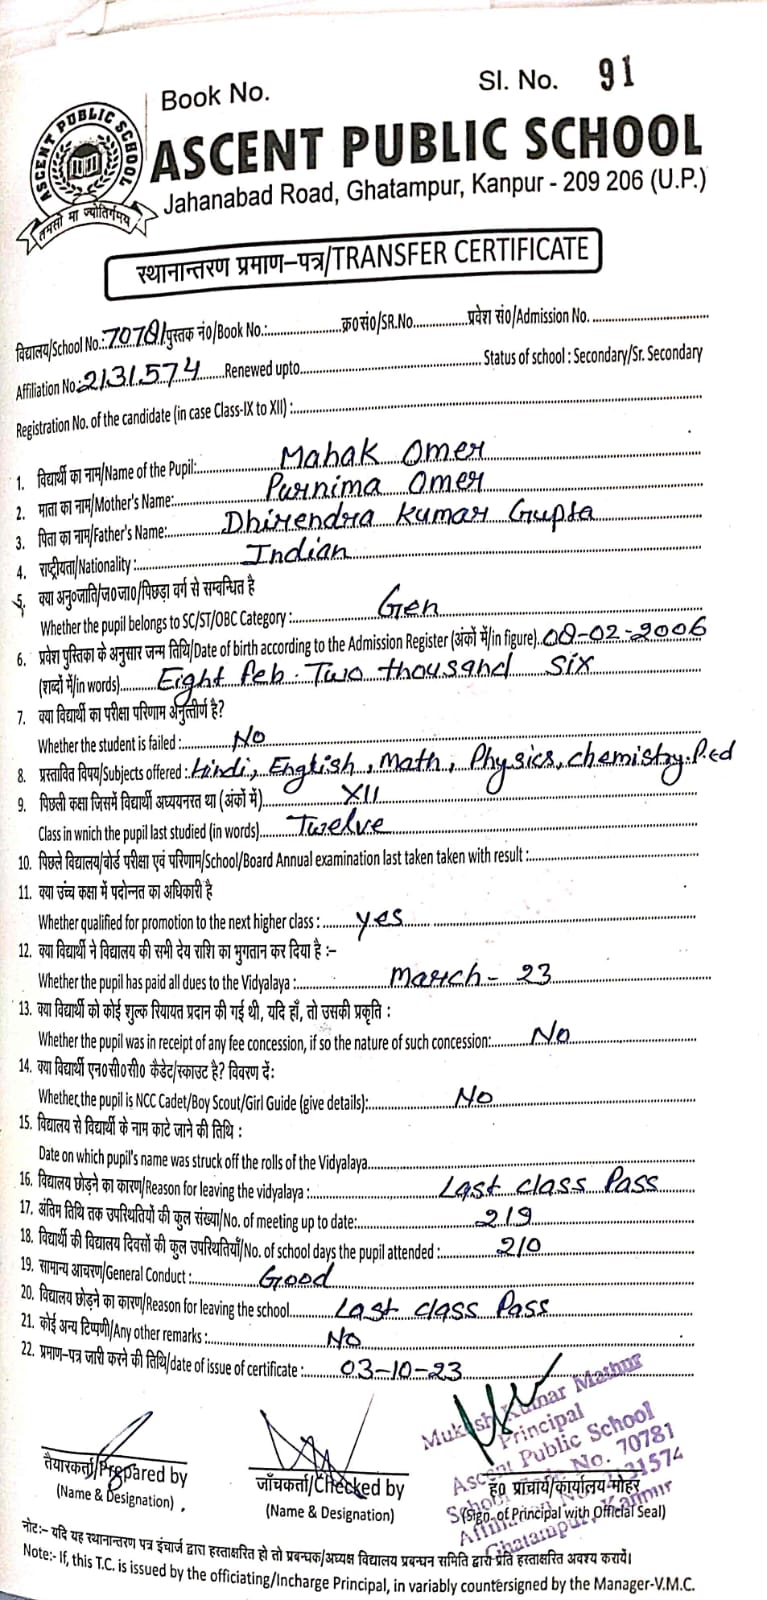 Book No.
Sl. No. 91
ASCENT PUBLIC SCHOOL
तमसो मा ज्योतिर्गमय
ASCENT PUBLIC SCHOOL
Jahanabad Road, Ghatampur, Kanpur - 209 206 (U.P.)
स्थानान्तरण प्रमाण–पत्र/TRANSFER CERTIFICATE
विद्यालय/School No.: 70781 पुस्तक नं०/Book No.: क्र०सं०/SR.No. प्रवेश सं०/Admission No.
Affiliation No: 2131574 Renewed upto Status of school : Secondary/Sr. Secondary
Registration No. of the candidate (in case Class-IX to XII) :
1. विद्यार्थी का नाम/Name of the Pupil: Mahak Omer
2. माता का नाम/Mother's Name: Purnima Omer
3. पिता का नाम/Father's Name: Dhirendra Kumar Gupta
4. राष्ट्रीयता/Nationality : Indian
5. क्या अनु०जाति/ज०जा०/पिछड़ा वर्ग से सम्बन्धित है
Whether the pupil belongs to SC/ST/OBC Category : Gen
6. प्रवेश पुस्तिका के अनुसार जन्म तिथि/Date of birth according to the Admission Register (अंकों में/in figure) 08-02-2006
(शब्दों में/in words) Eight feb. Two thousand six
7. क्या विद्यार्थी का परीक्षा परिणाम अनुत्तीर्ण है?
Whether the student is failed : No
8. प्रस्तावित विषय/Subjects offered : Hindi, English, Math, Physics, chemistry. P.ed
9. पिछली कक्षा जिसमें विद्यार्थी अध्ययनरत था (अंकों में) XII
Class in wnich the pupil last studied (in words) Twelve
10. पिछले विद्यालय/वोर्ड परीक्षा एवं परिणाम/School/Board Annual examination last taken taken with result :
11. क्या उच्च कक्षा में पदोन्नत का अधिकारी है
Whether qualified for promotion to the next higher class : yes
12. क्या विद्यार्थी ने विद्यालय की सभी देय राशि का भुगतान कर दिया है :–
Whether the pupil has paid all dues to the Vidyalaya : March - 23
13. क्या विद्यार्थी को कोई शुल्क रियायत प्रदान की गई थी, यदि हाँ, तो उसकी प्रकृति :
Whether the pupil was in receipt of any fee concession, if so the nature of such concession: No
14. क्या विद्यार्थी एन०सी०सी० कैडेट/स्काउट है? विवरण दें:
Whether the pupil is NCC Cadet/Boy Scout/Girl Guide (give details): No
15. विद्यालय से विद्यार्थी के नाम काटे जाने की तिथि :
Date on which pupil's name was struck off the rolls of the Vidyalaya
16. विद्यालय छोड़ने का कारण/Reason for leaving the vidyalaya : Last class Pass
17. अंतिम तिथि तक उपस्थितियों की कुल संख्या/No. of meeting up to date: 219
18. विद्यार्थी की विद्यालय दिवसों की कुल उपस्थितियाँ/No. of school days the pupil attended : 210
19. सामान्य आचरण/General Conduct : Good
20. विद्यालय छोड़ने का कारण/Reason for leaving the school Last class Pass
21. कोई अन्य टिप्पणी/Any other remarks : No
22. प्रमाण–पत्र जारी करने की तिथि/date of issue of certificate : 03-10-23
Mukesh Kumar Mathur
Principal
Ascent Public School
School No. 70781
Affiliation No. 2131574
Ghatampur, Kanpur
तैयारकर्ता/Prepared by
(Name & Designation)
जाँचकर्ता/Checked by
(Name & Designation)
ह० प्राचार्य/कार्यालय मोहर
(Sign. of Principal with Official Seal)
नोट:– यदि यह स्थानान्तरण पत्र इंचार्ज द्वारा हस्ताक्षरित हो तो प्रबन्धक/अध्यक्ष विद्यालय प्रबन्धन समिति द्वारा प्रति हस्ताक्षरित अवश्य करायें।
Note:- If, this T.C. is issued by the officiating/Incharge Principal, in variably countersigned by the Manager-V.M.C.